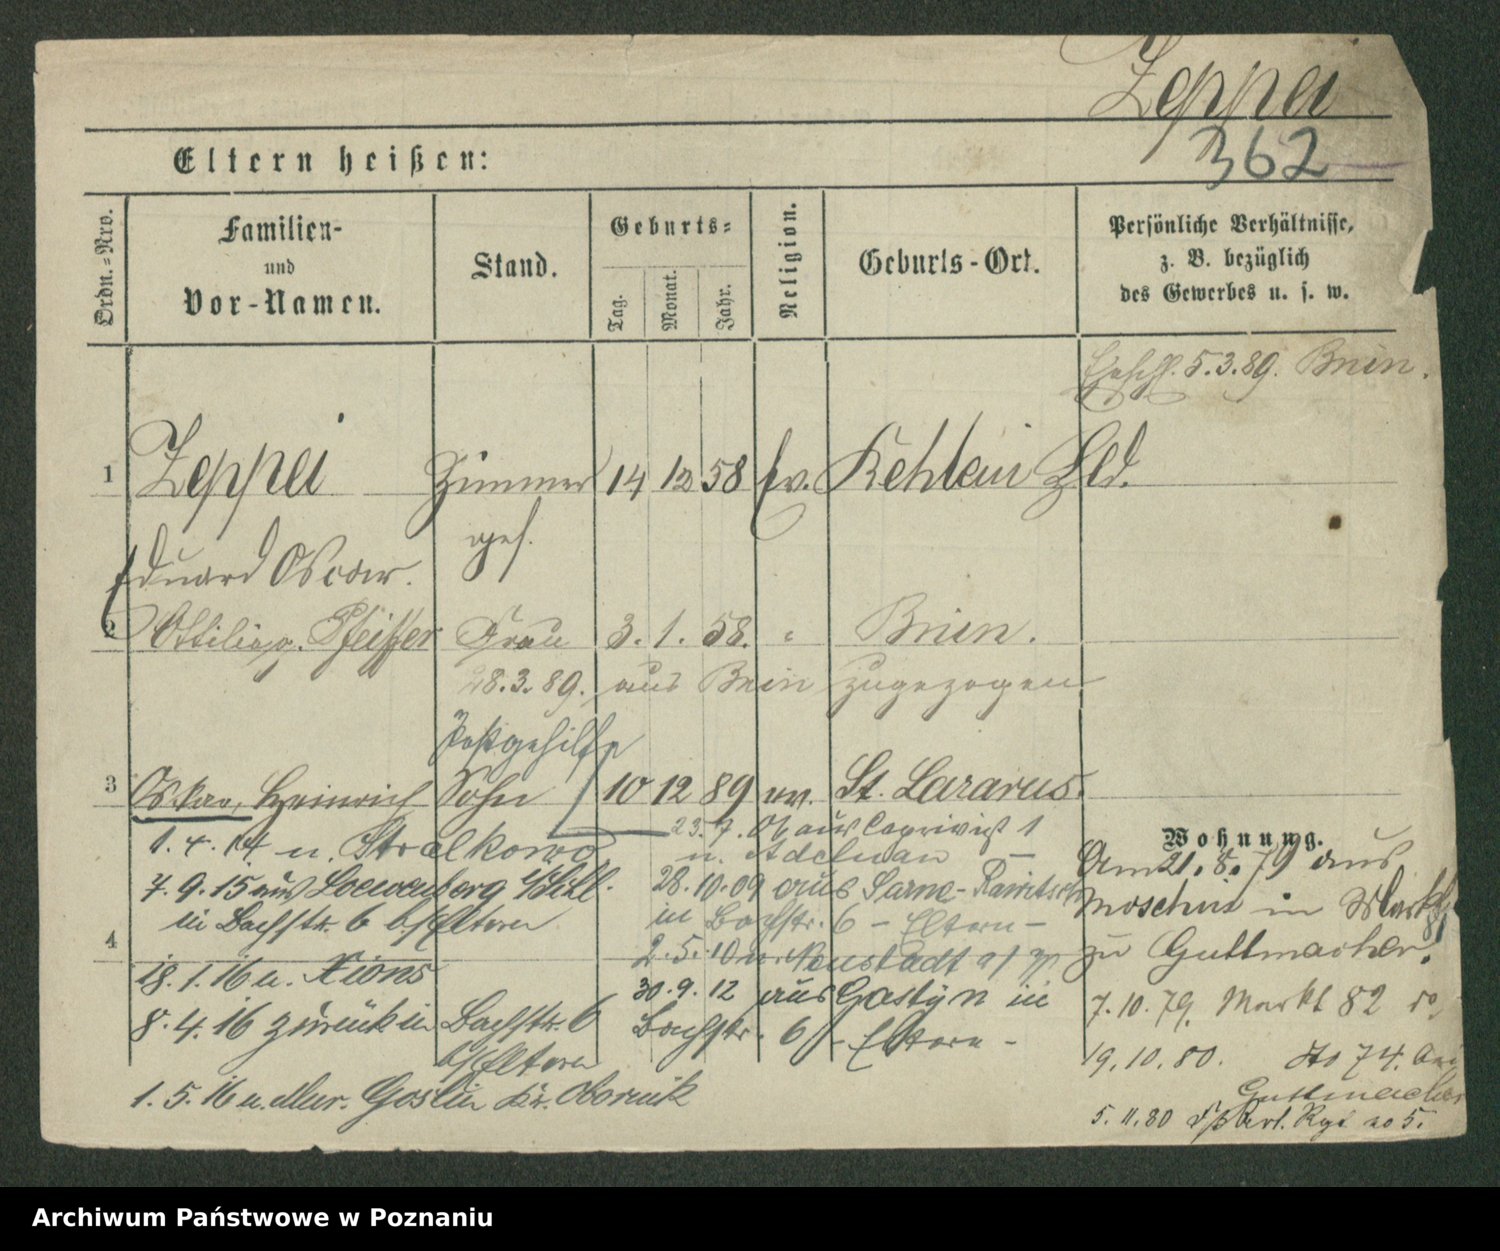 Zeppei
362
Eltern heißen:
Ordn.-Nro.
Familien-
und
Vor-Namen.
Stand.
Geburts-
Tag.
Monat.
Jahr.
Religion.
Geburts-Ort.
Persönliche Verhältnisse,
z. B. bezüglich
des Gewerbes u. s. w.
Eheschl. 5.3.89. Bnin.
1 Zeppei Zimmer 14 12 58 ev. Kehlein
ges.
Eduard Oscar.
2 Ottilie g. Pfeiffer Frau 3. 1. 58. " Bnin.
28.3.89. aus Bnin zugezogen
Postgehilfe
3 Oskar, Heinrich Sohn 10 12 89 ev. St. Lazarus.
1. 4. 14 n. Stralkowo
7. 9. 15 aus Loewenberg i/Schl.
in Bachstr. 6 b/Eltern
4
18. 1. 16 n. Xions
8. 4. 16 zurück in Bachstr. 6
b/Eltern
1. 5. 16 n. Mur. Goslin Kr. Obornik
23. 7. 06 aus Caprivist 1
n. Adelnau
28. 10. 09 aus Sarne-
in Bachstr. 6 - Eltern -
2. 5. 10 n. Neustadt a/
30. 9. 12 aus Gostyn in
Bachstr. 6 - Eltern -
Wohnung.
Am 21. 8. 79 aus
Moschin in Markt
81
zu Guttmacher.
7. 10. 79. Markt 82
19. 10. 80. 74. bei
Guttmacher
5. 11. 80 no 5.
Archiwum Państwowe w Poznaniu